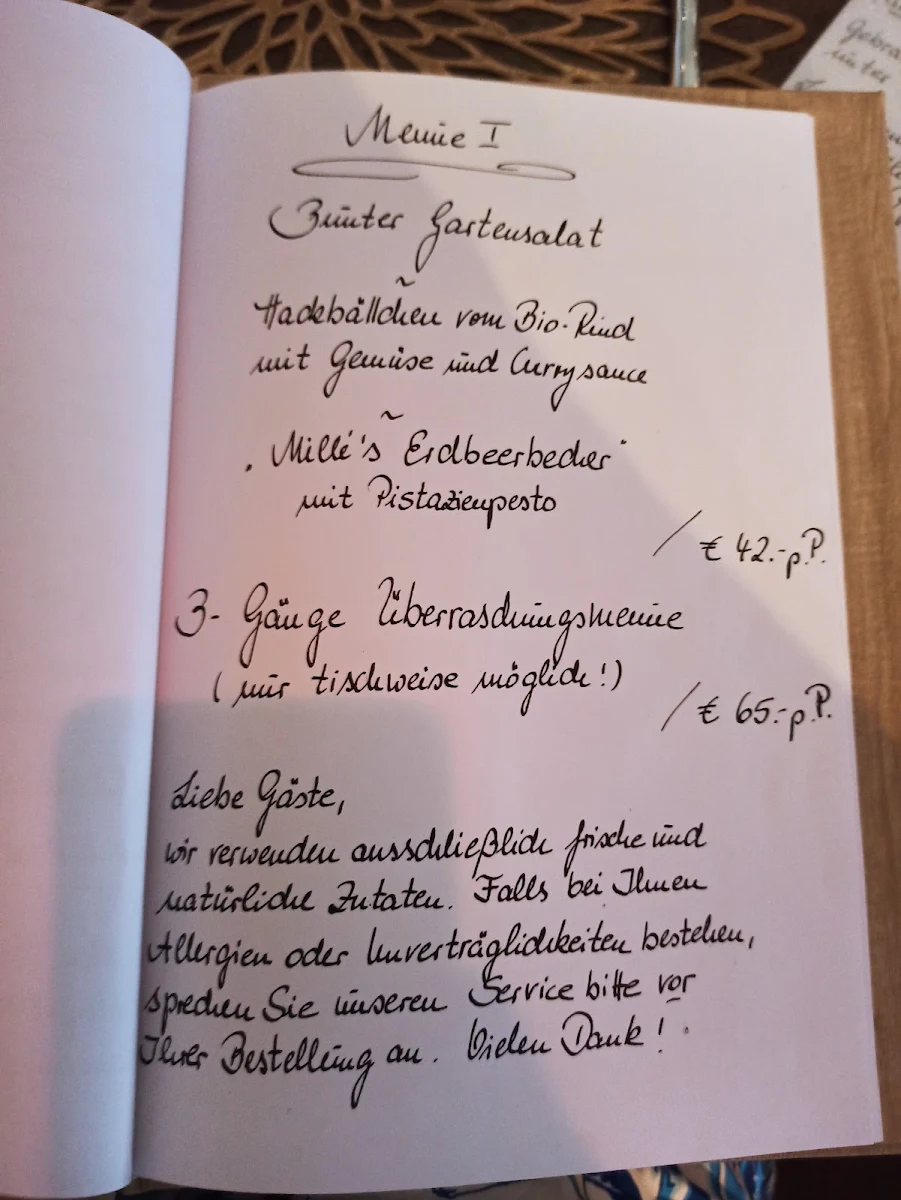 Menue I
Bunter Gartensalat
~
Hackbällchen vom Bio-Rind
mit Gemüse und Currysauce
~
"Millé's Erdbeerbecher"
mit Pistazienpesto
/ € 42.- p.P.
3-Gänge Überraschungsmenue
(nur tischweise möglich!)
/ € 65.- p.P.
Liebe Gäste,
wir verwenden ausschließlich frische und
natürliche Zutaten. Falls bei Ihnen
Allergien oder Unverträglichkeiten bestehen,
sprechen Sie unseren Service bitte vor
Ihrer Bestellung an. Vielen Dank!